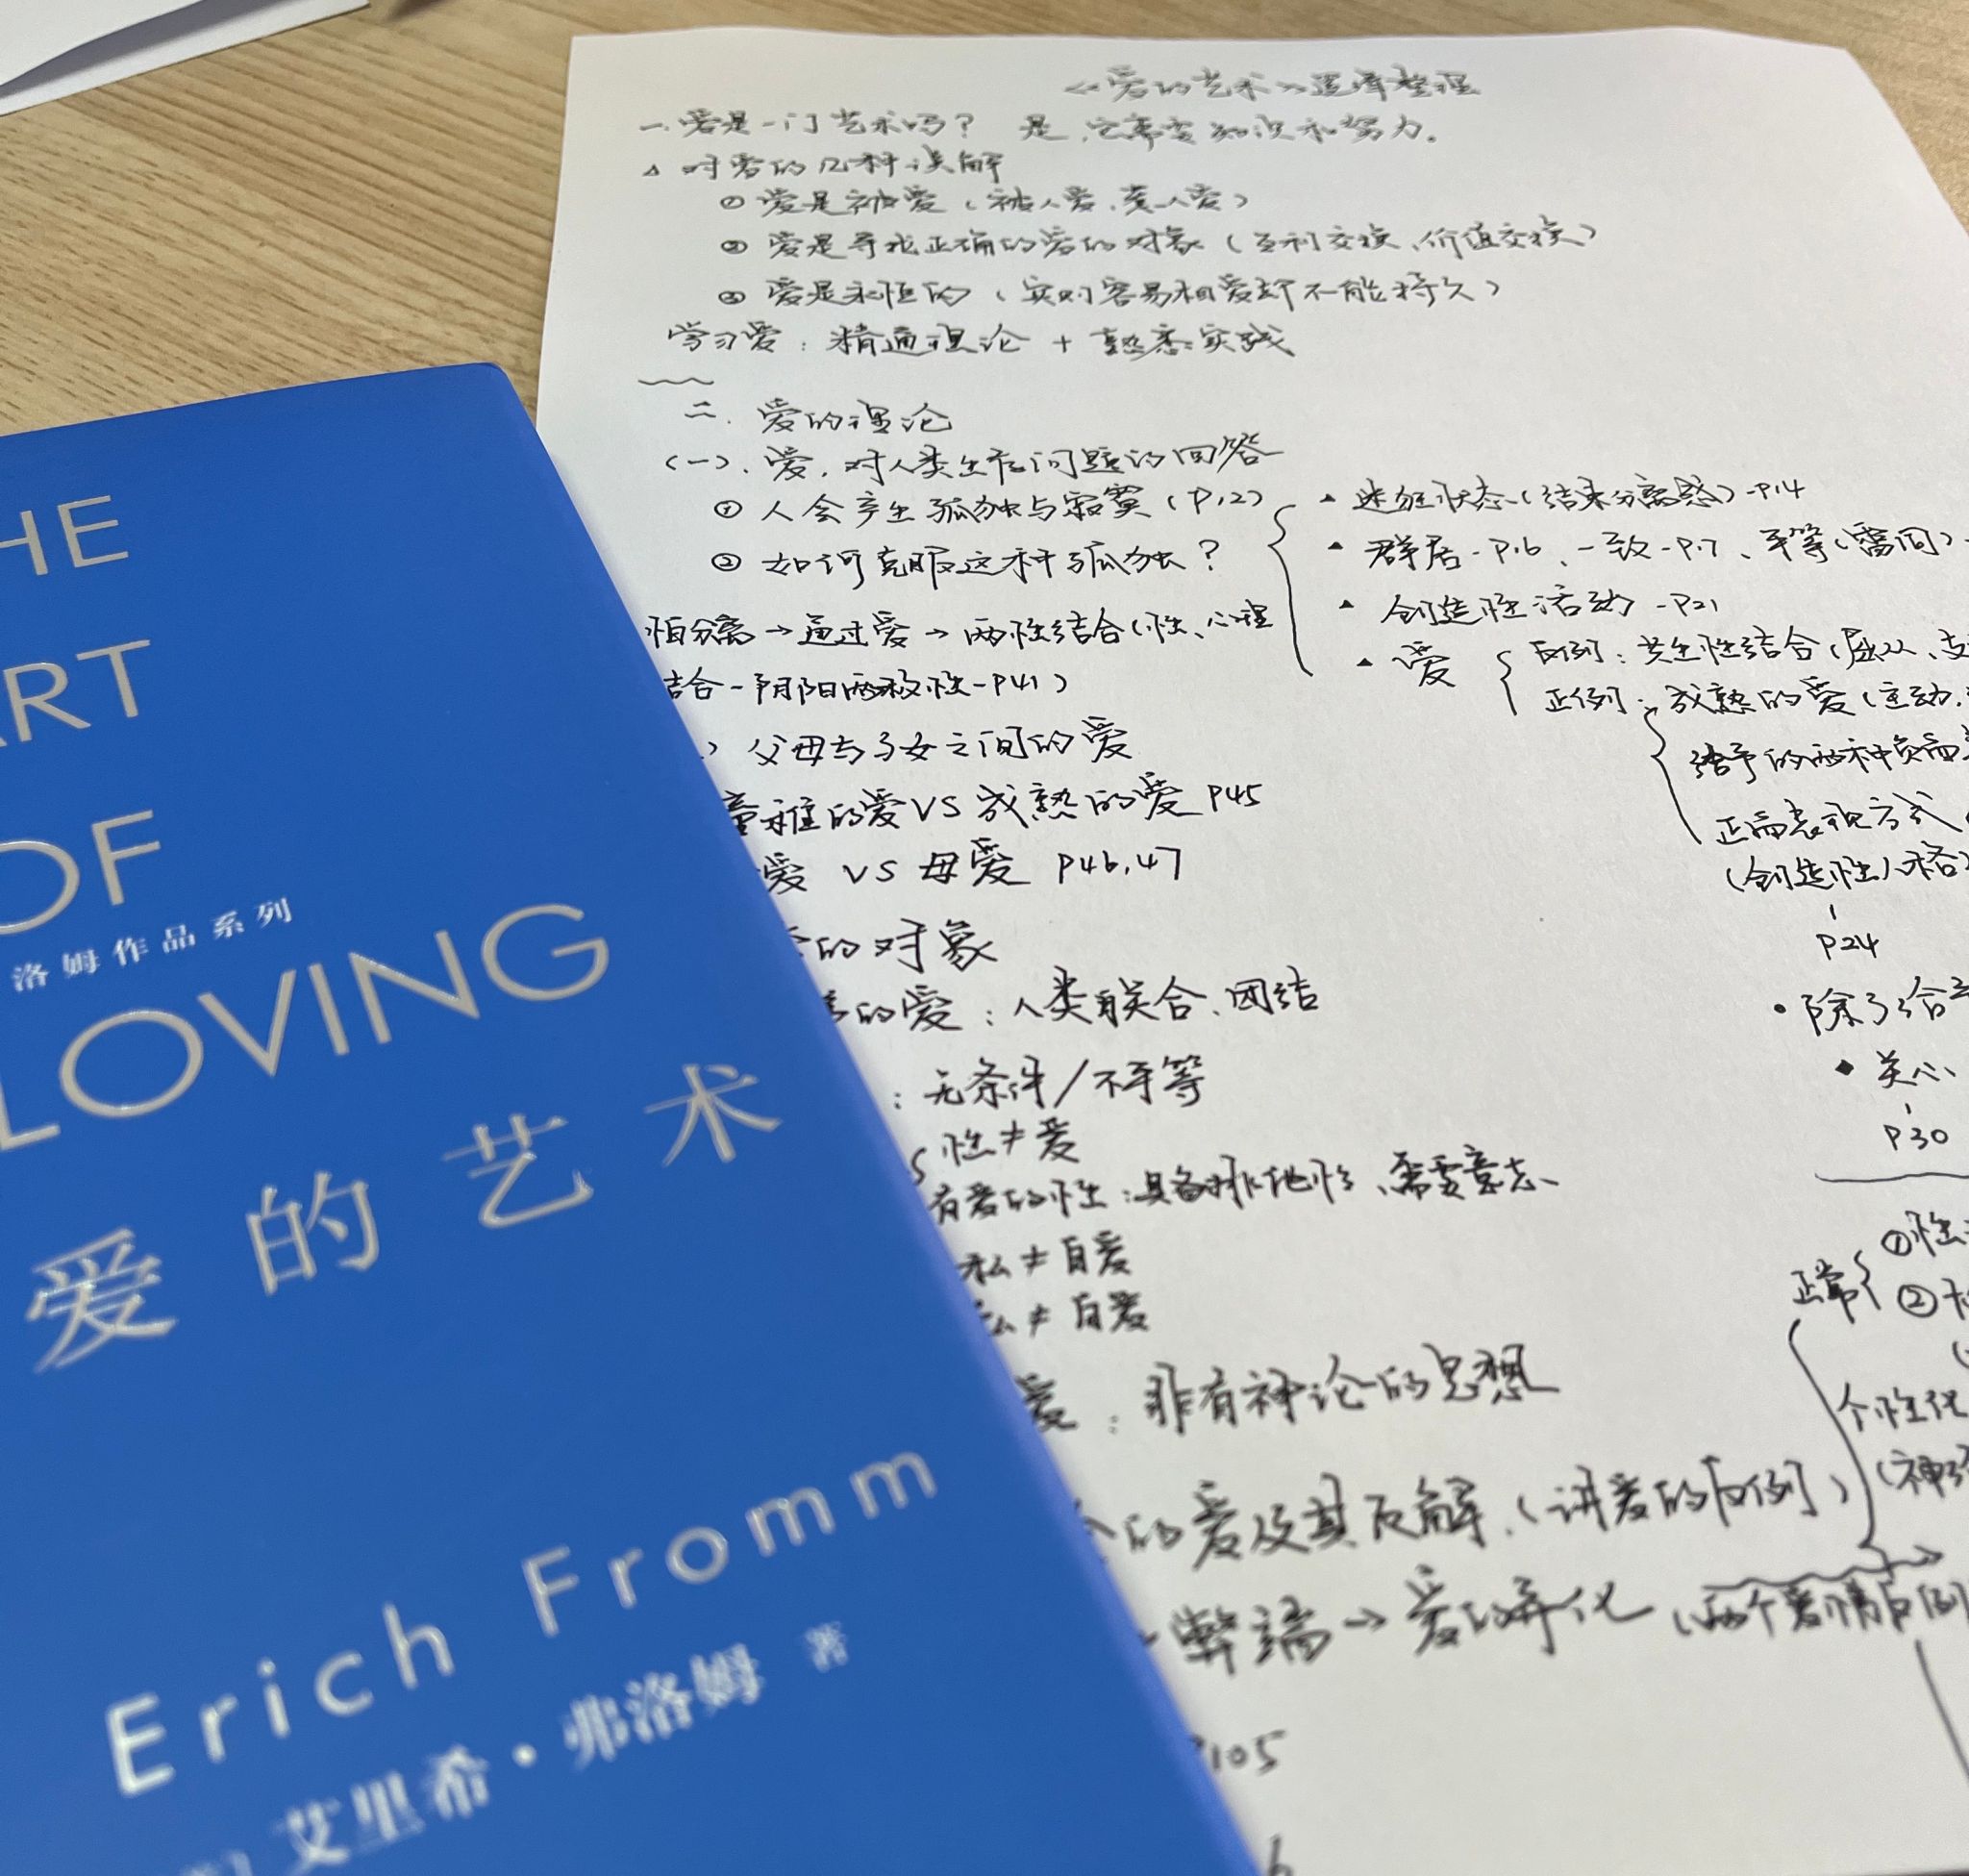 THE
ART
OF
洛姆作品系列
LOVING
爱的艺术
Erich Fromm
艾里希·弗洛姆 著
《爱的艺术》逻辑整理
一.爱是一门艺术吗? 是,它需要知识和努力。
△ 对爱的几种误解
① 爱是被爱(被人爱、
② 爱是寻找正确的爱的对象(互利交换、价值交换)
③ 爱是永恒的(实则容易相爱却不能持久)
学习爱:精通理论 + 熟悉实践
二. 爱的理论
(一).爱,对人类生存问题的回答
① 人会产生孤独与寂寞(P12)
② 如何克服这种孤独?
▲ 迷狂状态(结束分离感)-P14
▲ 群居-P16、一致-P17、平等(雷同)
▲ 创造性活动-P21
▲ 爱
反例:共生性结合(屈从、支
正例:成熟的爱(主动、
给予的两种负面
正面表现方式
(创造性人格)
P24
怕分离→通过爱→两性结合(性、心理
结合-阴阳两极性-P41)
) 父母与子女之间的爱
童稚的爱VS成熟的爱 P45
爱 VS 母爱 P46,47
的对象
的爱:人类联合、团结
:无条件/不平等
性≠爱
有爱的性:具备排他性、需要意志、
私≠自爱
私≠自爱
爱:非有神论的思想
的爱及其瓦解.(讲爱的反例)
弊端→爱的异化(两个爱情反例
P105
6
• 除了给予
◆ 关心、
P30
正常
① 性
②
个性化
(神经